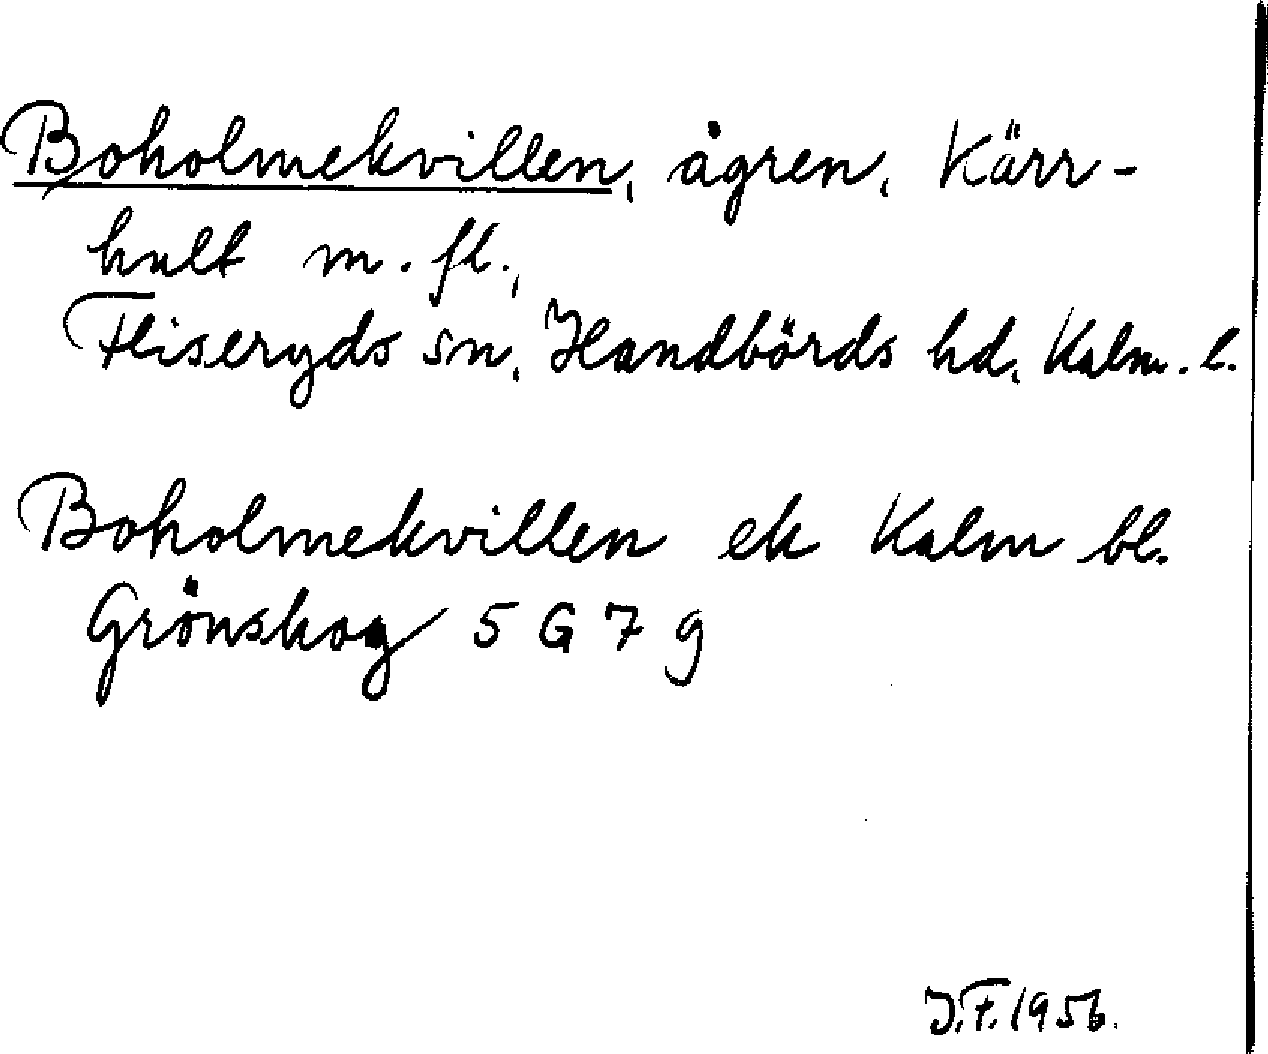 Boholmekvillen, ågren, Kärr-
hult m. fl.,
Fliseryds sn, Handbörds hd, Kalm. l.
Boholmekvillen ek Kalm bl.
Grönskog 5 G 7 g
J.F. 1956.